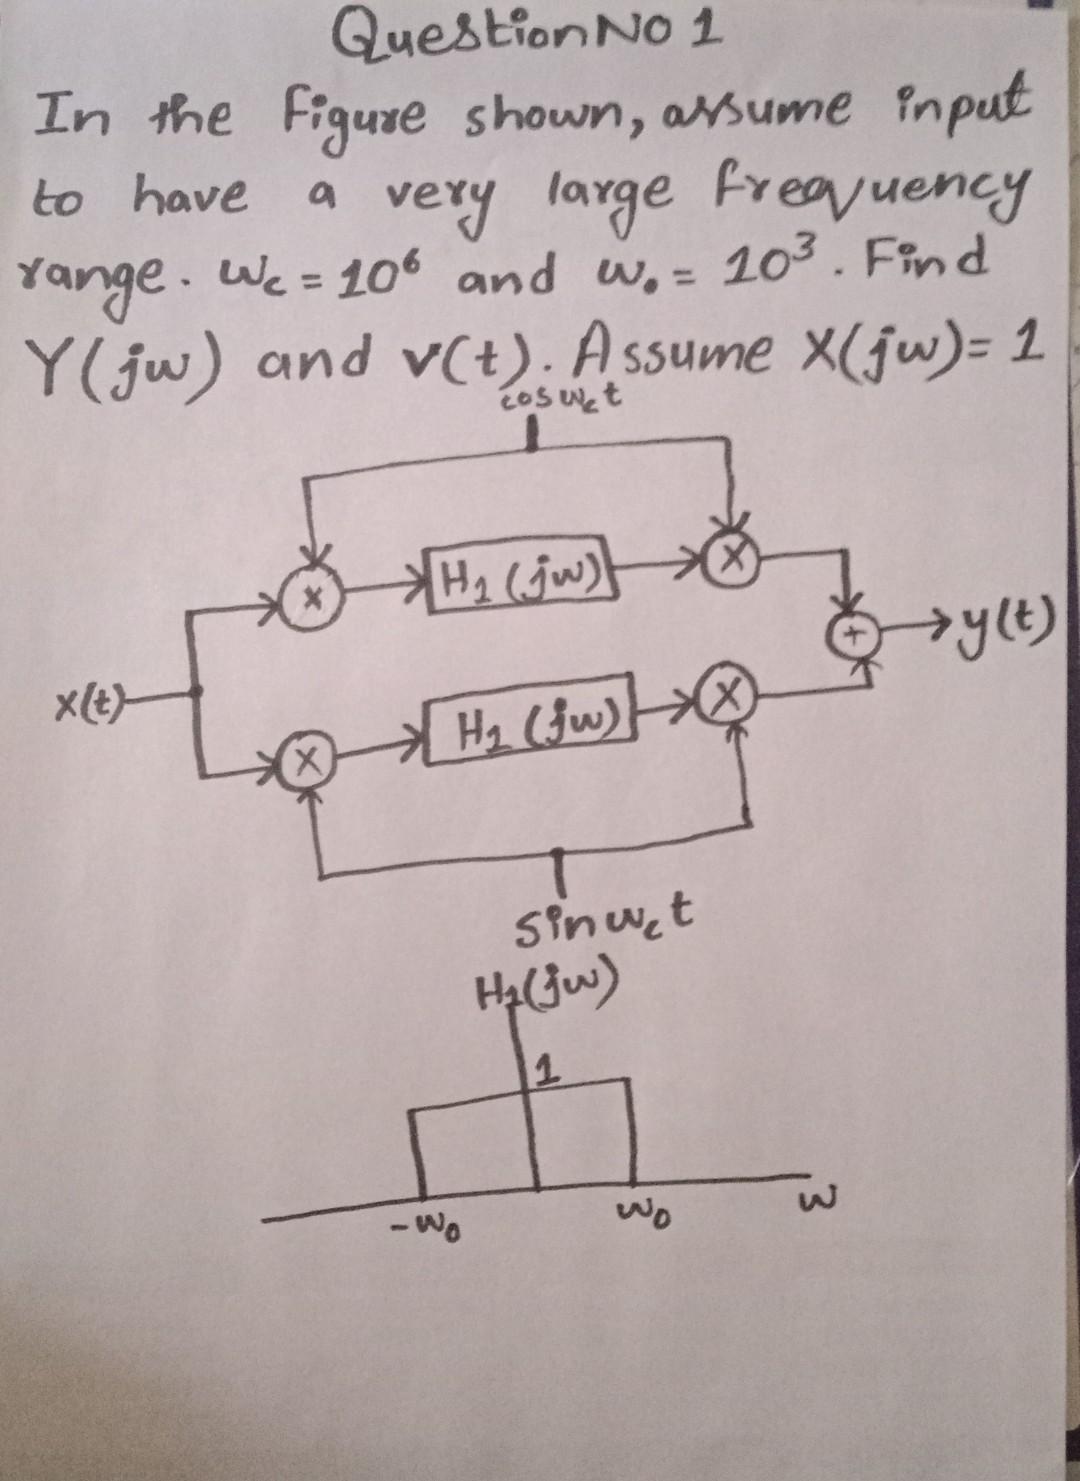 Question No 1
In the figure shown, assume input
to have a very large frequency
range. Wc = 10⁶ and W₀ = 10³. Find
Y(jw) and v(t). Assume X(jw)= 1
cos wct
x
H1 (jw)
X
+
y(t)
x(t)
X
H1 (jw)
X
sin wct
H1(jw)
1
-w0
w0
w